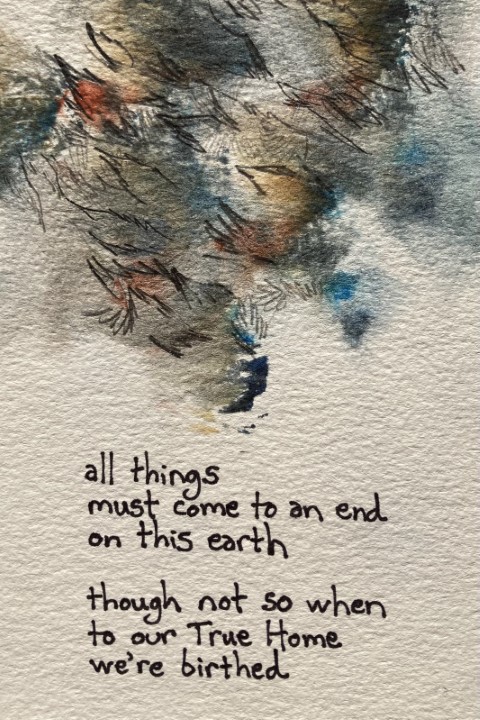 all things
must come to an end
on this earth
though not so when
to our True Home
we're birthed